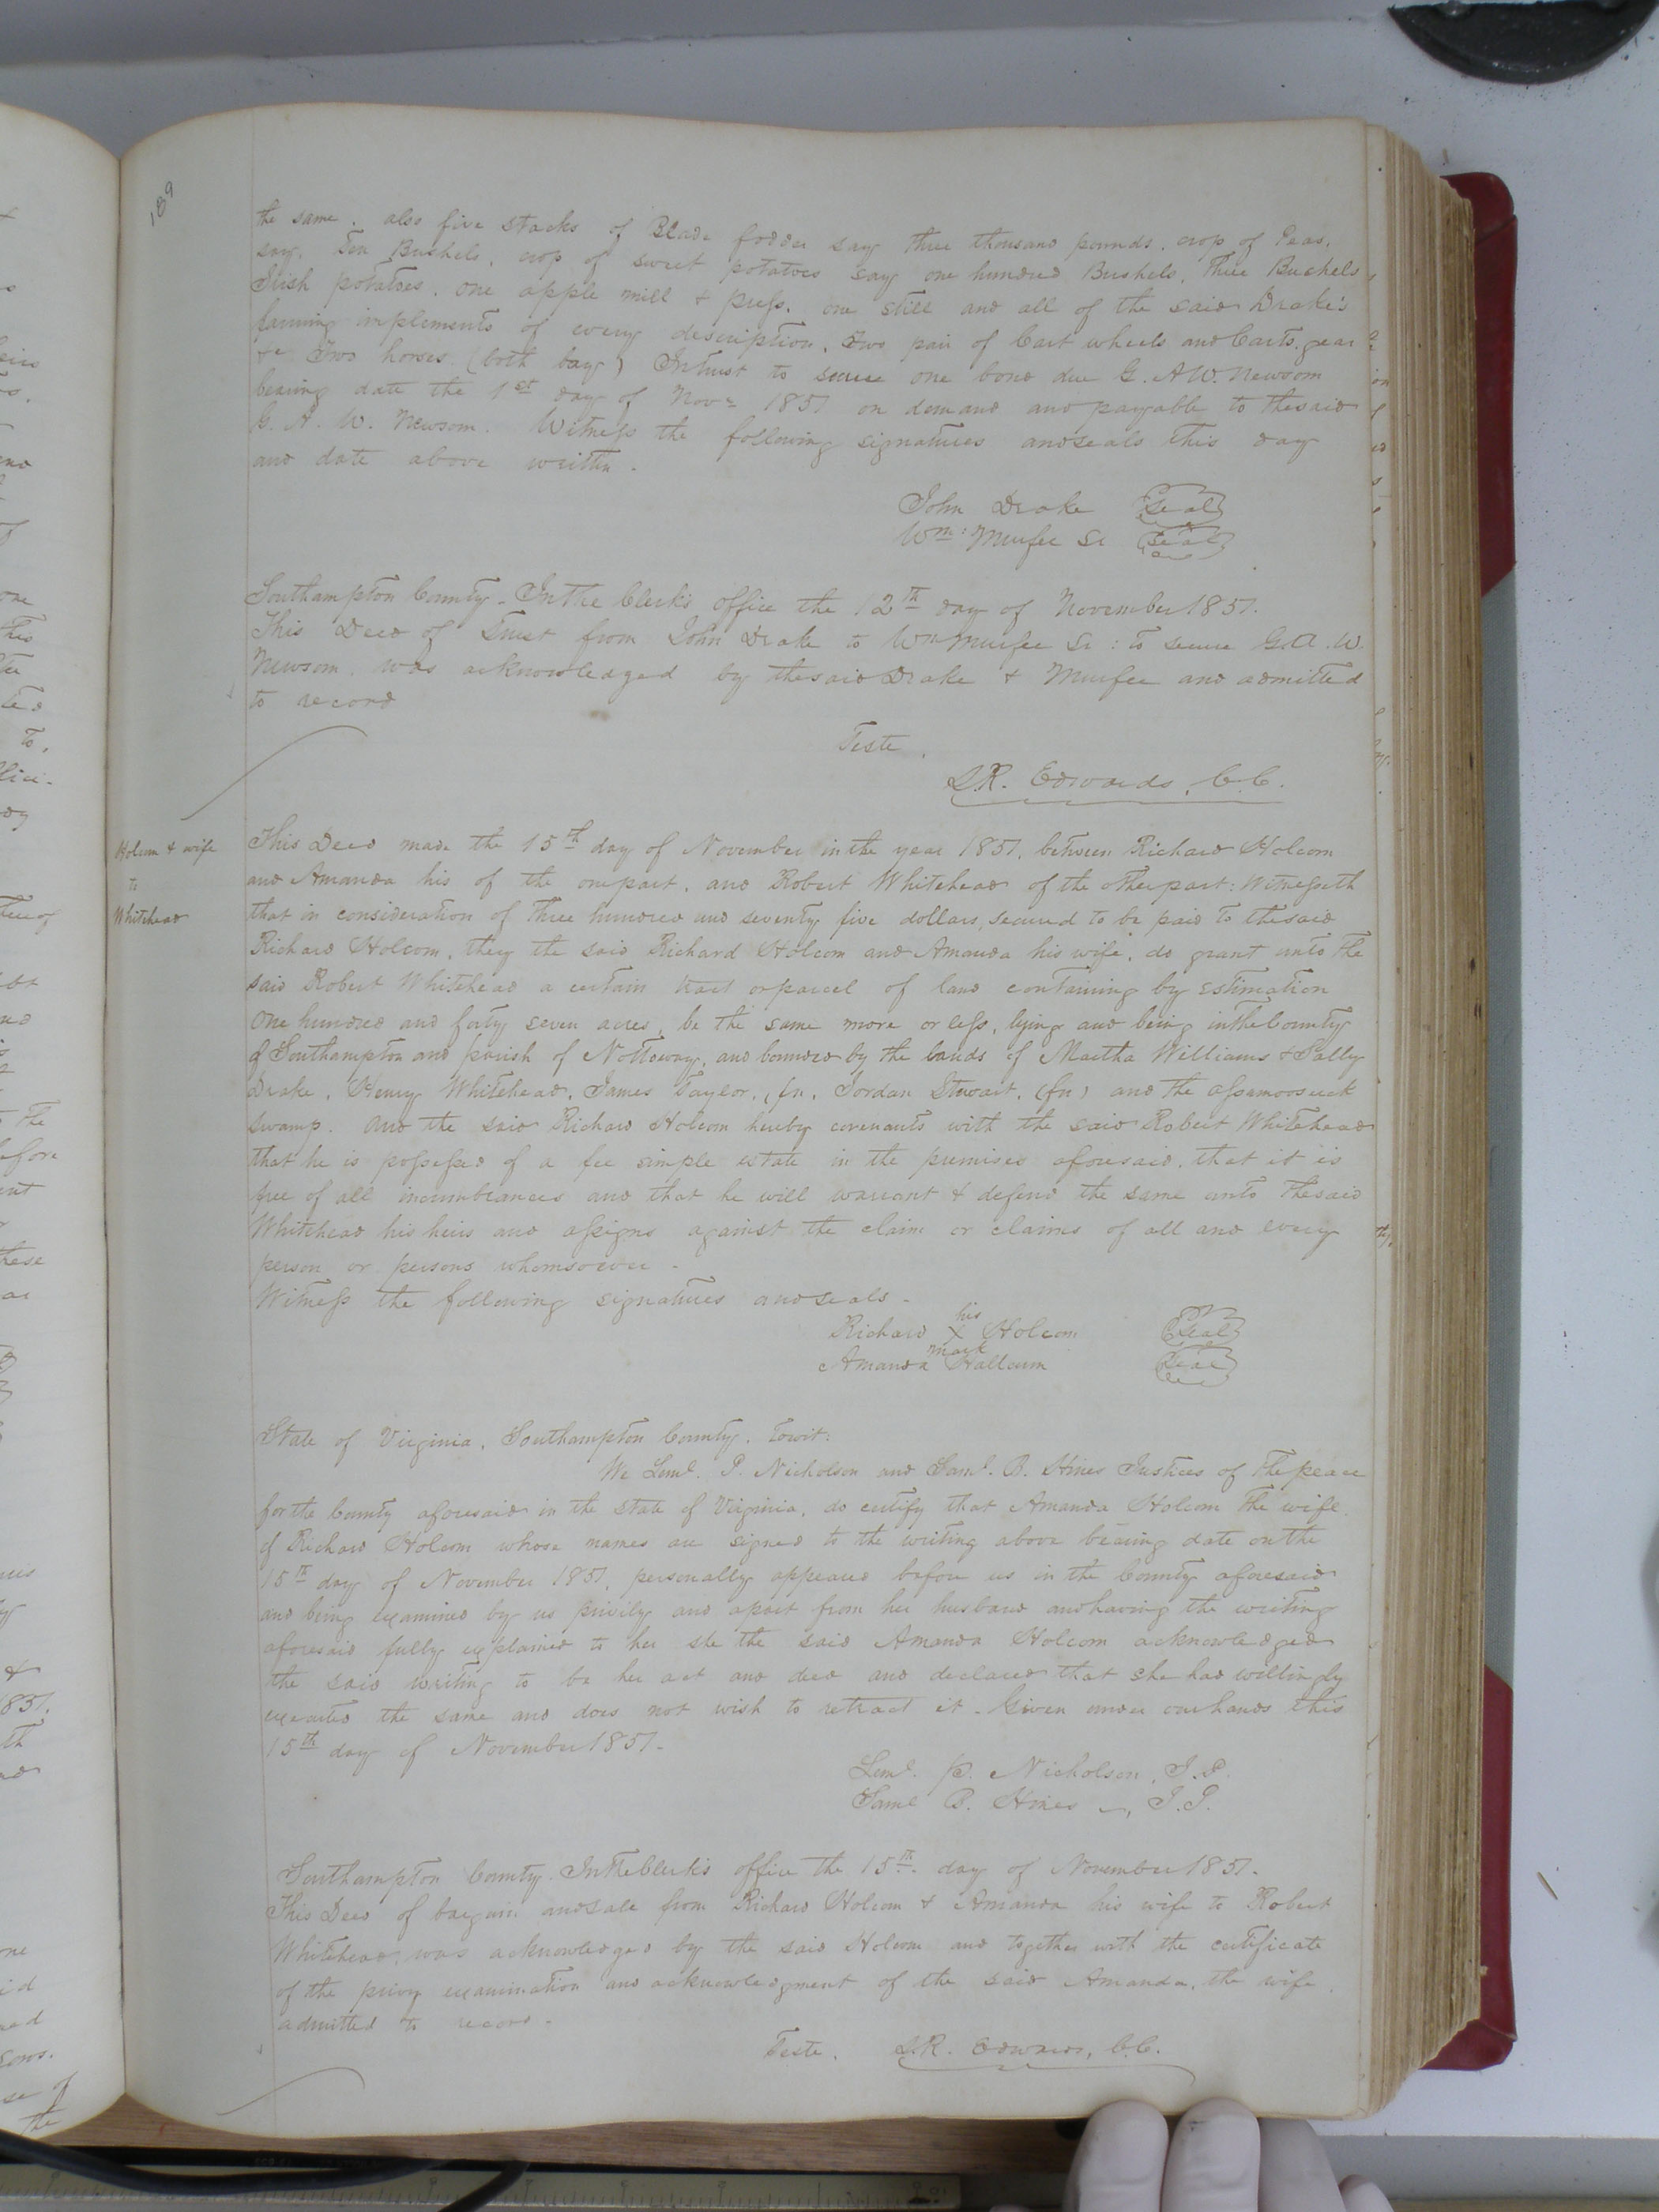 189
the same. also five stacks of Blade fodder say three thousand pounds. crop of Peas.
say. Ten Bushels. crop of sweet potatoes say one hundred Bushels. Three Bushels
Irish potatoes. one apple mill & press. one still and all of the said Drake's
farming implements of every description. Two pair of Cart wheels and Carts. gear
&c Two horses (both bay) In trust to secure one bond due G. A W. Newsom
bearing date the 1st day of Novr 1851 on demand and payable to the said
G. A. W. Newsom. Witness the following signatures and seals this day
and date above written.
John Drake Seal
Wm: Murfee Sr Seal
Southampton County - In the Clerk's office the 12th day of November 1851.
This Deed of Trust from John Drake to Wm Murfee Sr: to secure G.A.W.
Newsom. was acknowledged by the said Drake & Murfee and admitted
to record
Teste.
L.R. Edwards, C.C.
Holcom & wife
to
Whitehead
This Deed made the 15th day of November in the year 1851. between Richard Holcom
and Amanda his of the one part. and Robert Whitehead of the other part: Witnesseth
that in consideration of three hundred and seventy five dollars, secured to be paid to the said
Richard Holcom, they the said Richard Holcom and Amanda his wife, do grant unto the
said Robert Whitehead a certain tract or parcel of land containing by estimation
One hundred and forty seven acres, be the same more or less, lying and being in the County
of Southampton and parish of Nottoway, and bounded by the lands of Martha Williams & Sally
Drake, Henry Whitehead, James Taylor, (fn, Jordan Stewart, (fn) and the Assamoosuck
swamp. And the said Richard Holcom hereby covenants with the said Robert Whitehead
that he is possessed of a fee simple estate in the premises aforesaid. that it is
free of all incumbrances and that he will warrant & defend the same unto the said
Whitehead his heirs and assigns against the claim or claims of all and every
person or persons whomsoever -
Witness the following signatures and seals -
his
Richard X Holcom Seal
mark
Amanda Hallcum Seal
State of Virginia, Southampton County. Towit:
We Leml. P. Nicholson and Saml. B. Hines Justices of the peace
for the County aforesaid in the state of Virginia, do certify that Amanda Holcom the wife
of Richard Holcom whose names are signed to the writing above bearing date on the
15th day of November 1851, personally appeared before us in the County aforesaid
and being examined by us privily and apart from her husband and having the writing
aforesaid fully explained to her she the said Amanda Holcom acknowledged
the said writing to be her act and deed and declared that she had willingly
executed the same and does not wish to retract it - Given under our hands this
15th day of November 1851 -
Leml. P. Nicholson, J.P.
Saml B. Hines, J.P.
Southampton County. In the Clerk's office the 15th. day of November 1851.
This Deed of bargain and sale from Richard Holcom & Amanda his wife to Robert
Whitehead, was acknowledged by the said Holcom and together with the certificate
of the privy examination and acknowledgment of the said Amanda, the wife
admitted to record -
Teste. L.R. Edwards, C.C.